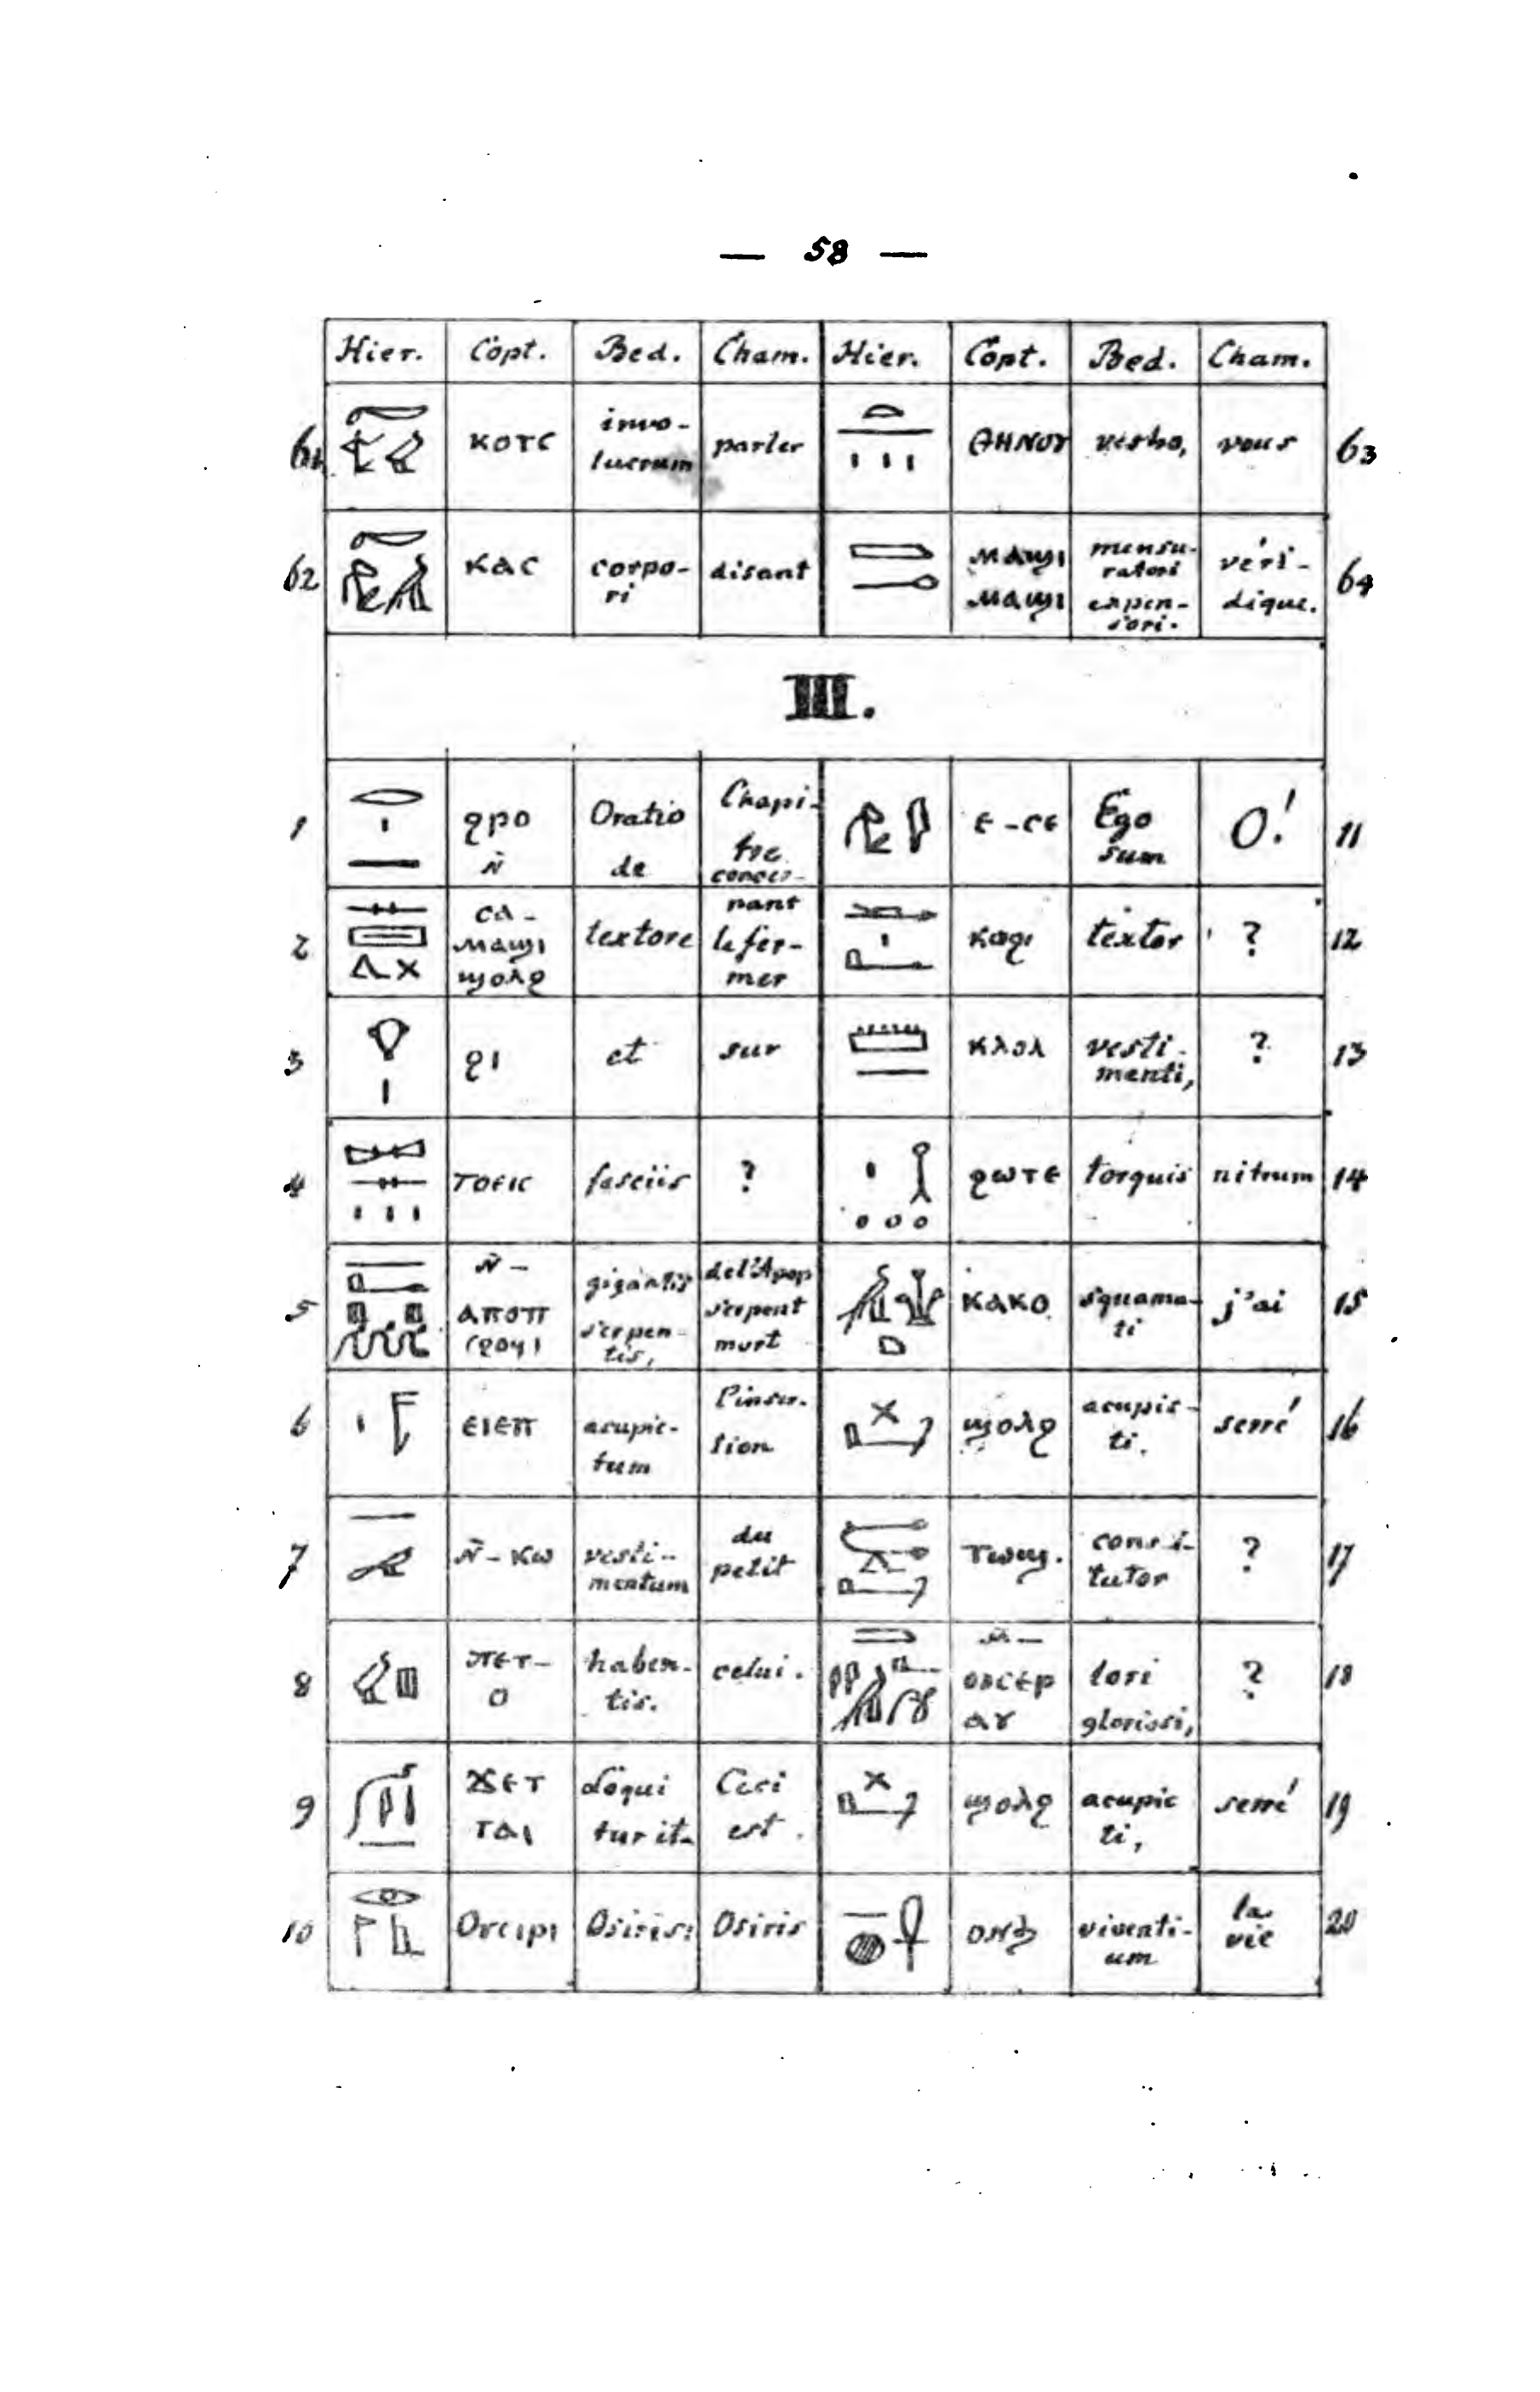 — 58 —
Hier. Copt. Bed. Cham. Hier. Copt. Bed. Cham.
61 ⲕⲟⲧⲥ invo-lucrum parler ⲑⲏⲛⲟⲩ verbo, vous 63
62 ⲕⲁⲥ corpo-ri disant ⲙⲁϣⲓ ⲙⲁϣⲓ mensu-ratori expen-sori. véri-dique. 64
III.
1 ϩⲣⲟ ⲛ̄ Oratio de Chapi-tre concer- ⲉ-ⲥⲉ Ego sum O! 11
2 ⲥⲁ-ⲙⲁϣⲓ ϣⲟⲗϩ textore nant le fer-mer ⲕⲁϩⲓ textor ? 12
3 ϩⲓ et sur ⲕⲗⲟⲗ vesti-menti, ? 13
4 ⲧⲟⲉⲓⲥ fasciis ? ϩⲱⲧⲉ torquis nitrum 14
5 ⲛ̄- ⲁⲡⲟⲡ (ϩⲟϥ) gigantis serpen-tis, del'Apop serpent mort ⲕⲁⲕⲟ squama-ti j'ai 15
6 ⲉⲓⲉⲡ acupic-tum l'inser-tion ϣⲟⲗϩ acupic-ti. serré 16
7 ⲛ̄-ⲕⲱ vesti-mentum du petit ⲧⲱϣ. consti-tutor ? 17
8 ⲡⲉⲧ-ⲟ haben-tis. celui. lori gloriosi, ? 18
9 ϫⲉⲧ ⲧⲁⲓ Loqui tur ita Ceci est. ϣⲟⲗϩ acupic ti, serré 19
10 ⲟⲩⲥⲓⲣⲓ Osiris: Osiris ⲟⲛϧ viventi-um la vie 20